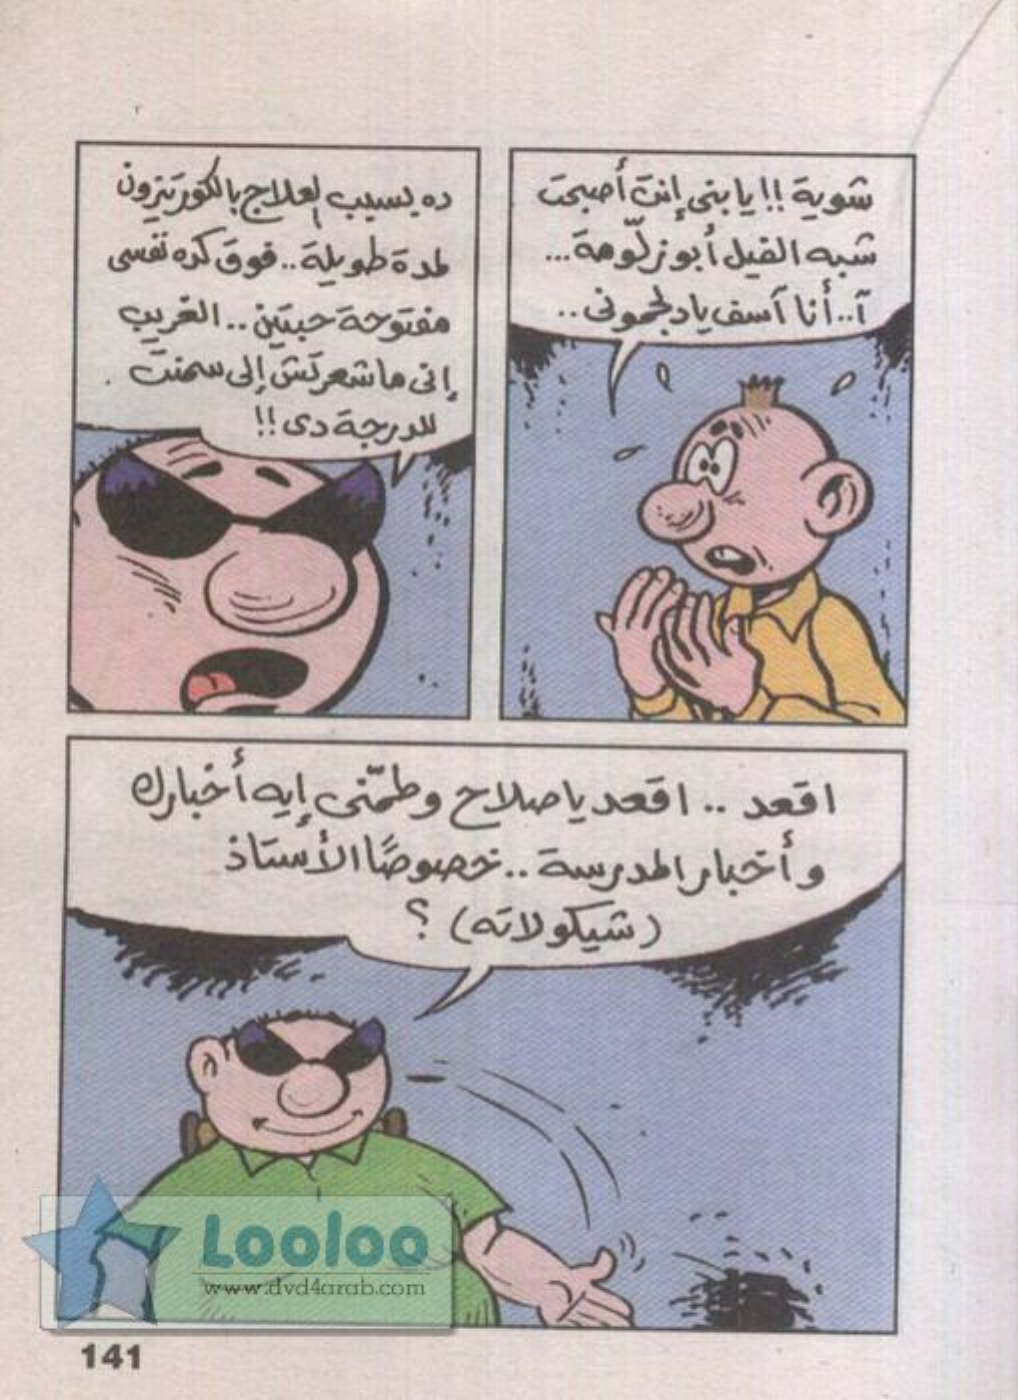 شوية !! يا بنى إنت أصبحت
شبه الفيل أبو زلّومة...
آ.. أنا آسف يا دلجمونى ..
ده بسبب العلاج بالكورتيزون
لمدة طويلة .. فوق كده نفسى
مفتوحة حبتين .. الغريب
إنى ما شعرتش إنى سمنت
للدرجة دى !!
اقعد .. اقعد يا صلاح وطمّنى إيه أخبارك
وأخبار المدرسة .. خصوصًا الأستاذ
(شيكولاته) ؟
Looloo
www.dvd4arab.com
141